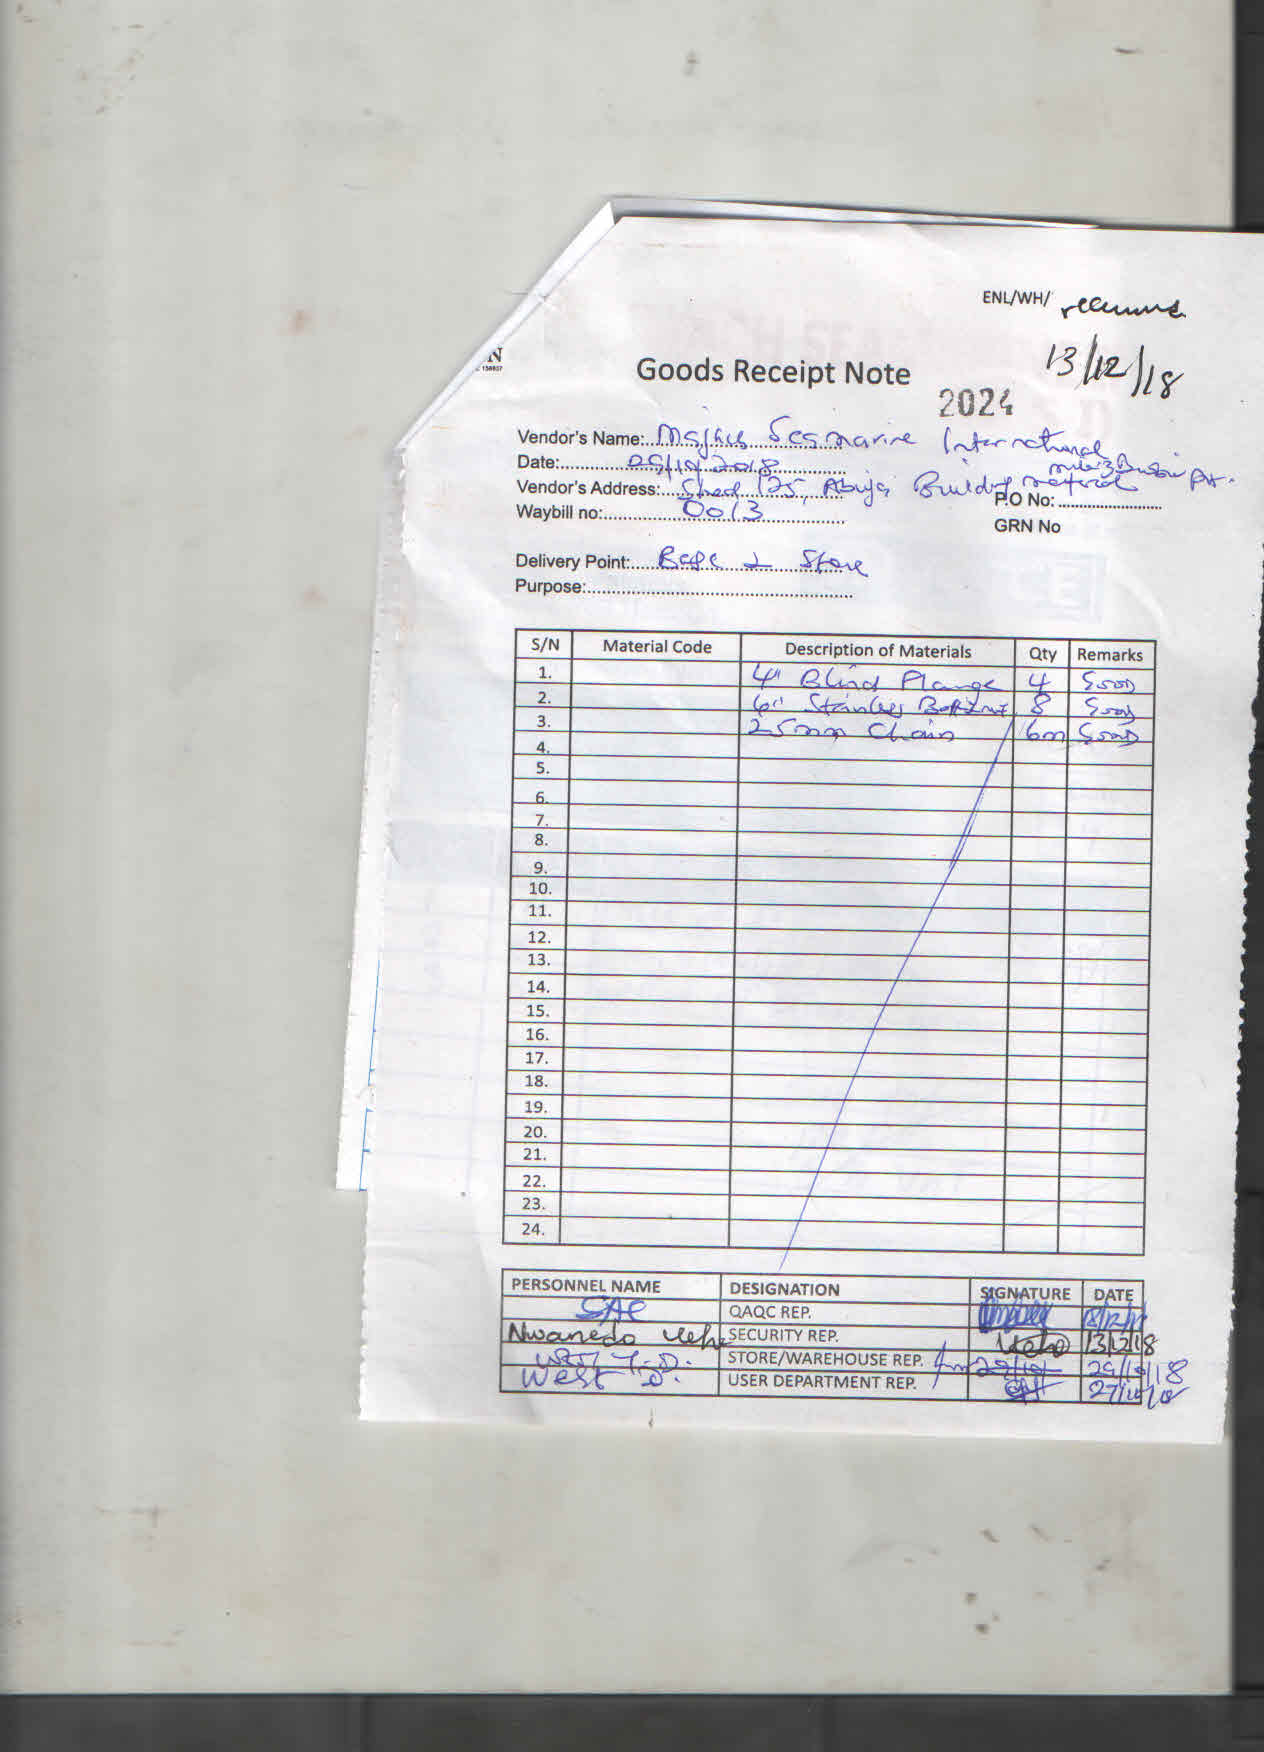 ENL/WH/
13/12/18
N
Goods Receipt Note
2024
Vendor's Name: Seamarine International
Date:
Vendor's Address: Shed 125, Abuja Building material
P.O No:
Waybill no: 0013
GRN No
Delivery Point: Store
Purpose:
S/N Material Code Description of Materials Qty Remarks
1. 4" Blind Flange 4 Good
2. 6" 8 Good
3. 25mm Chain 6m Good
4.
5.
6.
7.
8.
9.
10.
11.
12.
13.
14.
15.
16.
17.
18.
19.
20.
21.
22.
23.
24.
PERSONNEL NAME DESIGNATION SIGNATURE DATE
QAQC REP.
Nwanedo SECURITY REP. 13/12/18
STORE/WAREHOUSE REP.
West D. USER DEPARTMENT REP.